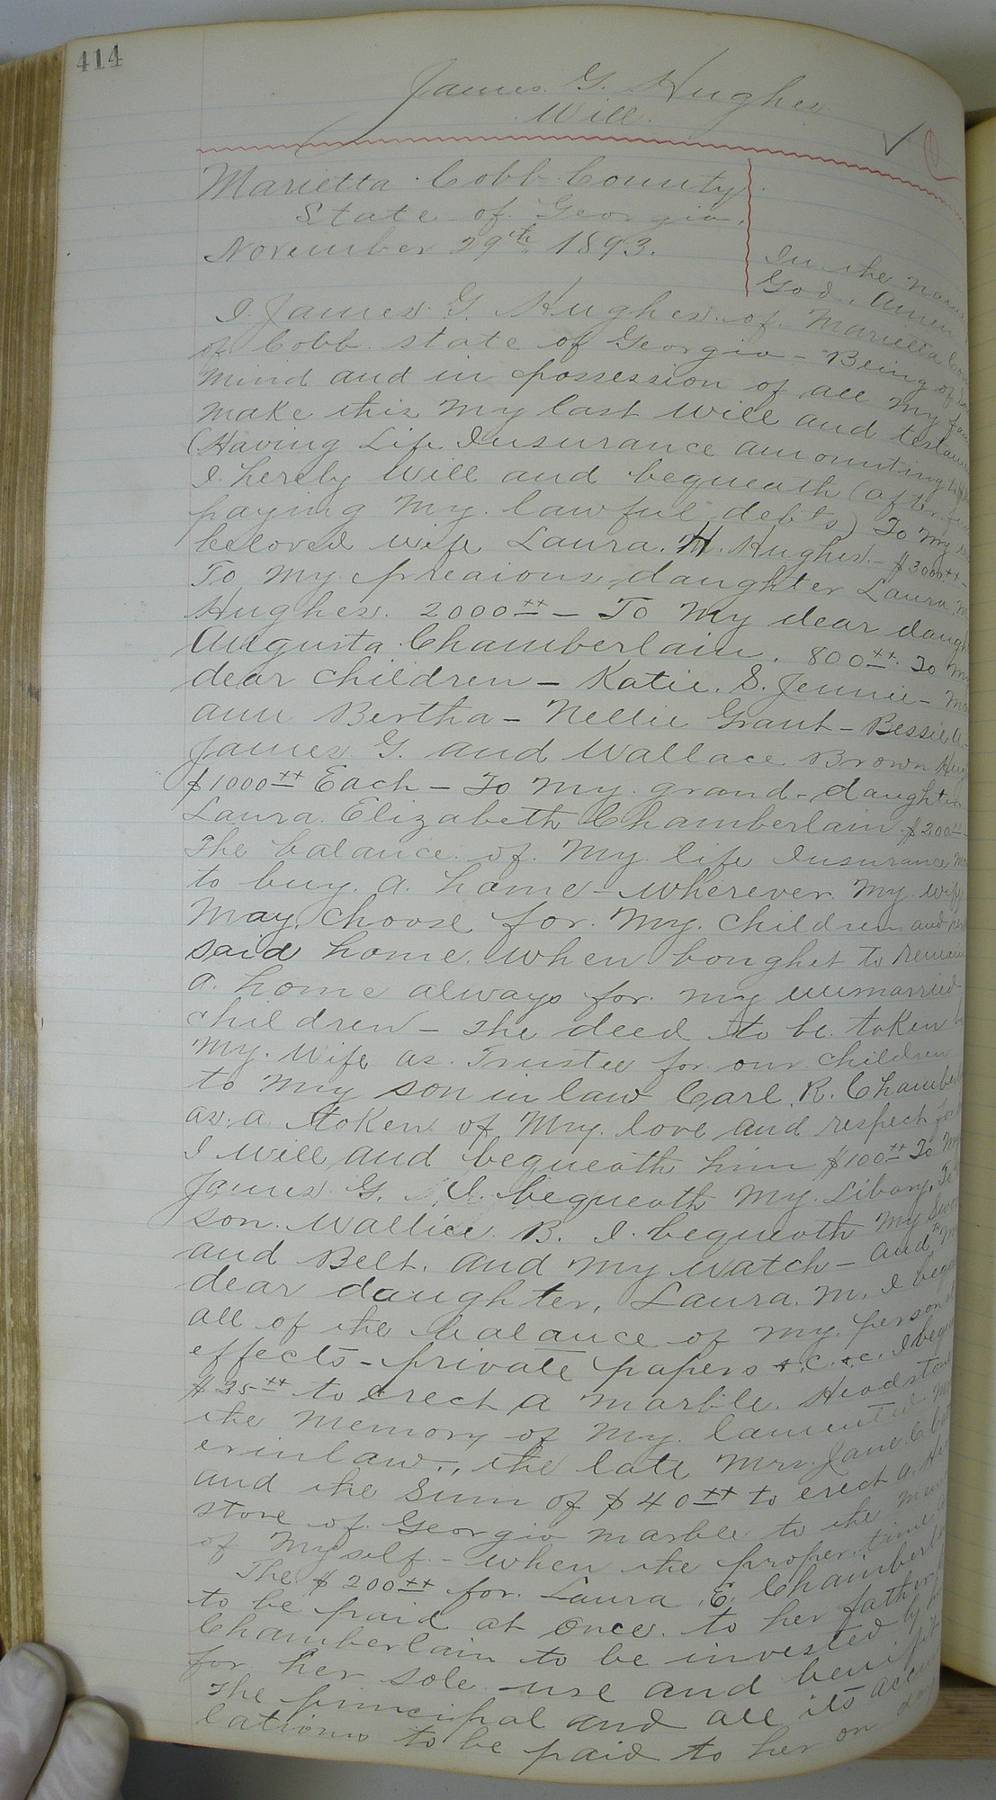 414
James G. Hughes
Will.
Marietta Cobb County
State of Georgia.
November 29th 1893.
In the name
God, Amen
I James G. Hughes of Marietta
of Cobb state of Georgia - Being of
mind and in possession of all my
make this my last will and
(Having Life Insurance amounting
I hereby will and bequeath (after
paying my lawful debts) To my
beloved wife Laura. H. Hughes - $3000xx
To my precious daughter Laura
Hughes. 2000xx - To my dear
Augusta Chamberlain. 800xx. To my
dear children - Katie. S. Jennie -
ann Bertha - Nellie Grant - Bessie
James G. and Wallace Brown
$1000xx Each - To my grand-daughter
Laura Elizabeth Chamberlain $200xx
The balance of my life Insurance
to buy a home - wherever my wife
may choose for my children and
said home when bought to remain
a home always for my unmarried
children - The deed to be taken
my wife as Trustee for our children
to my son in law Carl R.
as a token of my love and respect
I will and bequeath him $100xx To
James G. I bequeath my Libary. To
son Wallice B. I bequeath my
and Belt. and my watch - and
dear daughter, Laura. M. I
all of the balance of my personal
effects - private papers &.c. &.c. I
$35xx to erect a marble.
the memory of my lamented
erinlaw., the late Mrs. Jane C.
and the sum of $40xx to erect a
stone of Georgia marble to the
of Myself - when the proper time
The $200xx for Laura E.
to be paid at once to her father
Chamberlain to be invested by
for her sole use and benifit
The principal and all its
lations to be paid to her on